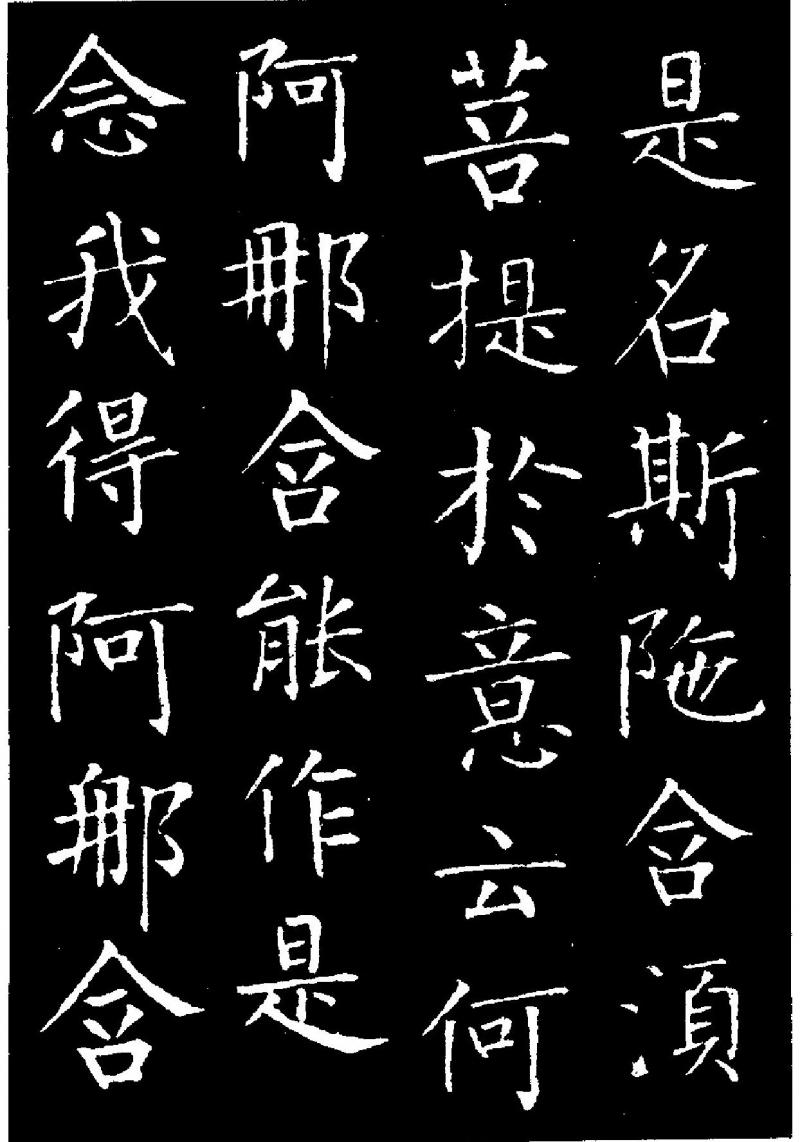 是名斯陁含湏
菩提於意云何
阿那含能作是
念我得阿那含